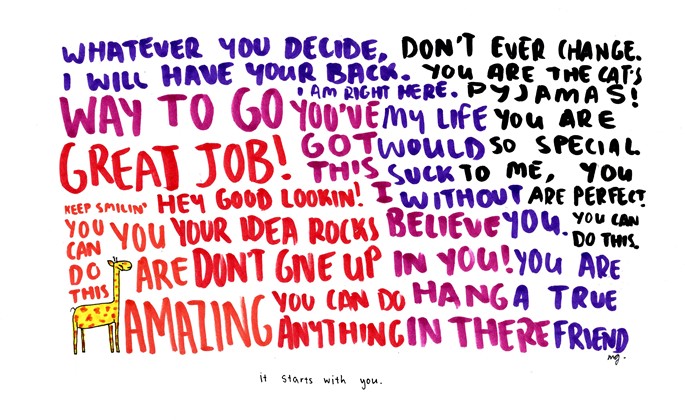 WHATEVER YOU DECIDE,
I WILL HAVE YOUR BACK.
DON'T EVER CHANGE.
YOU ARE THE CAT'S
PYJAMAS!
I AM RIGHT HERE.
WAY TO GO
GREAT JOB!
YOU'VE
GOT
THIS
MY LIFE
WOULD
SUCK
WITHOUT
YOU.
YOU ARE
SO SPECIAL
TO ME, YOU
ARE PERFECT.
KEEP SMILIN'
HEY GOOD LOOKIN!
I
BELIEVE
IN YOU!
YOU CAN
DO THIS.
YOU
CAN
DO
THIS
YOU
ARE
AMAZING
YOUR IDEA ROCKS
DON'T GIVE UP
YOU CAN DO
ANYTHING
HANG
IN THERE
YOU ARE
A TRUE
FRIEND
mg.
it starts with you.